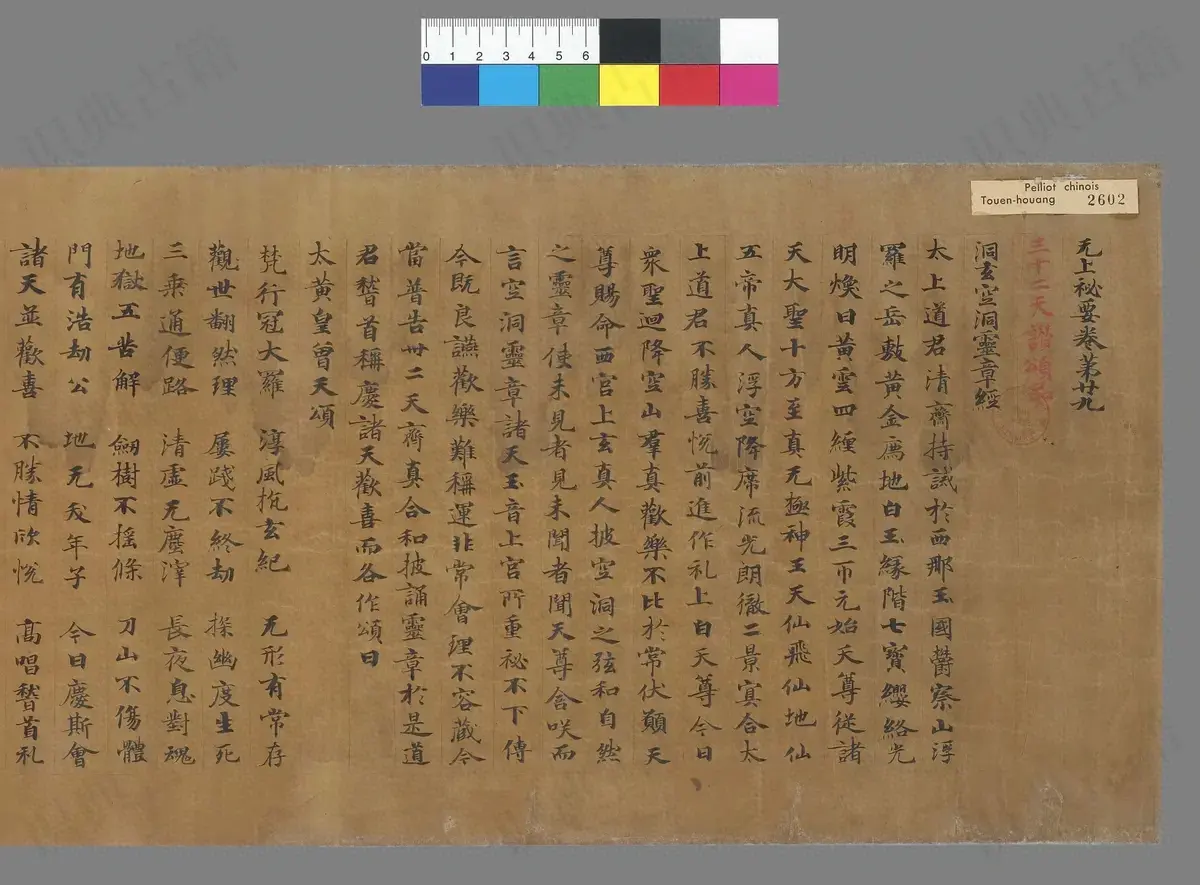 Pelliot chinois
Touen-houang 2602
0 1 2 3 4 5 6
无上秘要卷第廿九
三十二天讚頌
洞玄空洞靈章經
太上道君清齋持誡於西那玉國欝察山浮
羅之岳敷黄金爲地白玉緣階七寶纓絡光
明煥日黄雲四纏紫霞三帀元始天尊從諸
天大聖十方至真无極神王天仙飛仙地仙
五帝真人浮空降席流光朗徹二景冥合太
上道君不勝喜悦前進作礼上白天尊今日
衆聖迴降空山羣真歡樂不比於常伏願天
尊賜命西宫上玄真人披空洞之弦和自然
之靈章使未見者見未聞者聞天尊含咲而
言空洞靈章諸天玉音上宫所重秘不下傳
今既良讌歡樂難稱運非常會理不容藏今
當普告卅二天齊真合和披誦靈章於是道
君䭫首稱慶諸天歡喜而各作頌曰
太黄皇曾天頌
梵行冠大羅 淳風拖玄紀 无形有常存
觀世翻然理 屢踐不終劫 採幽度生死
三乘通便路 清虚无塵滓 長夜息對魂
地獄五苦解 劒樹不摇條 刀山不傷體
門有浩劫公 地无夭年子 今日慶斯會
諸天並歡喜 不勝情欣悦 髙唱䭫首礼